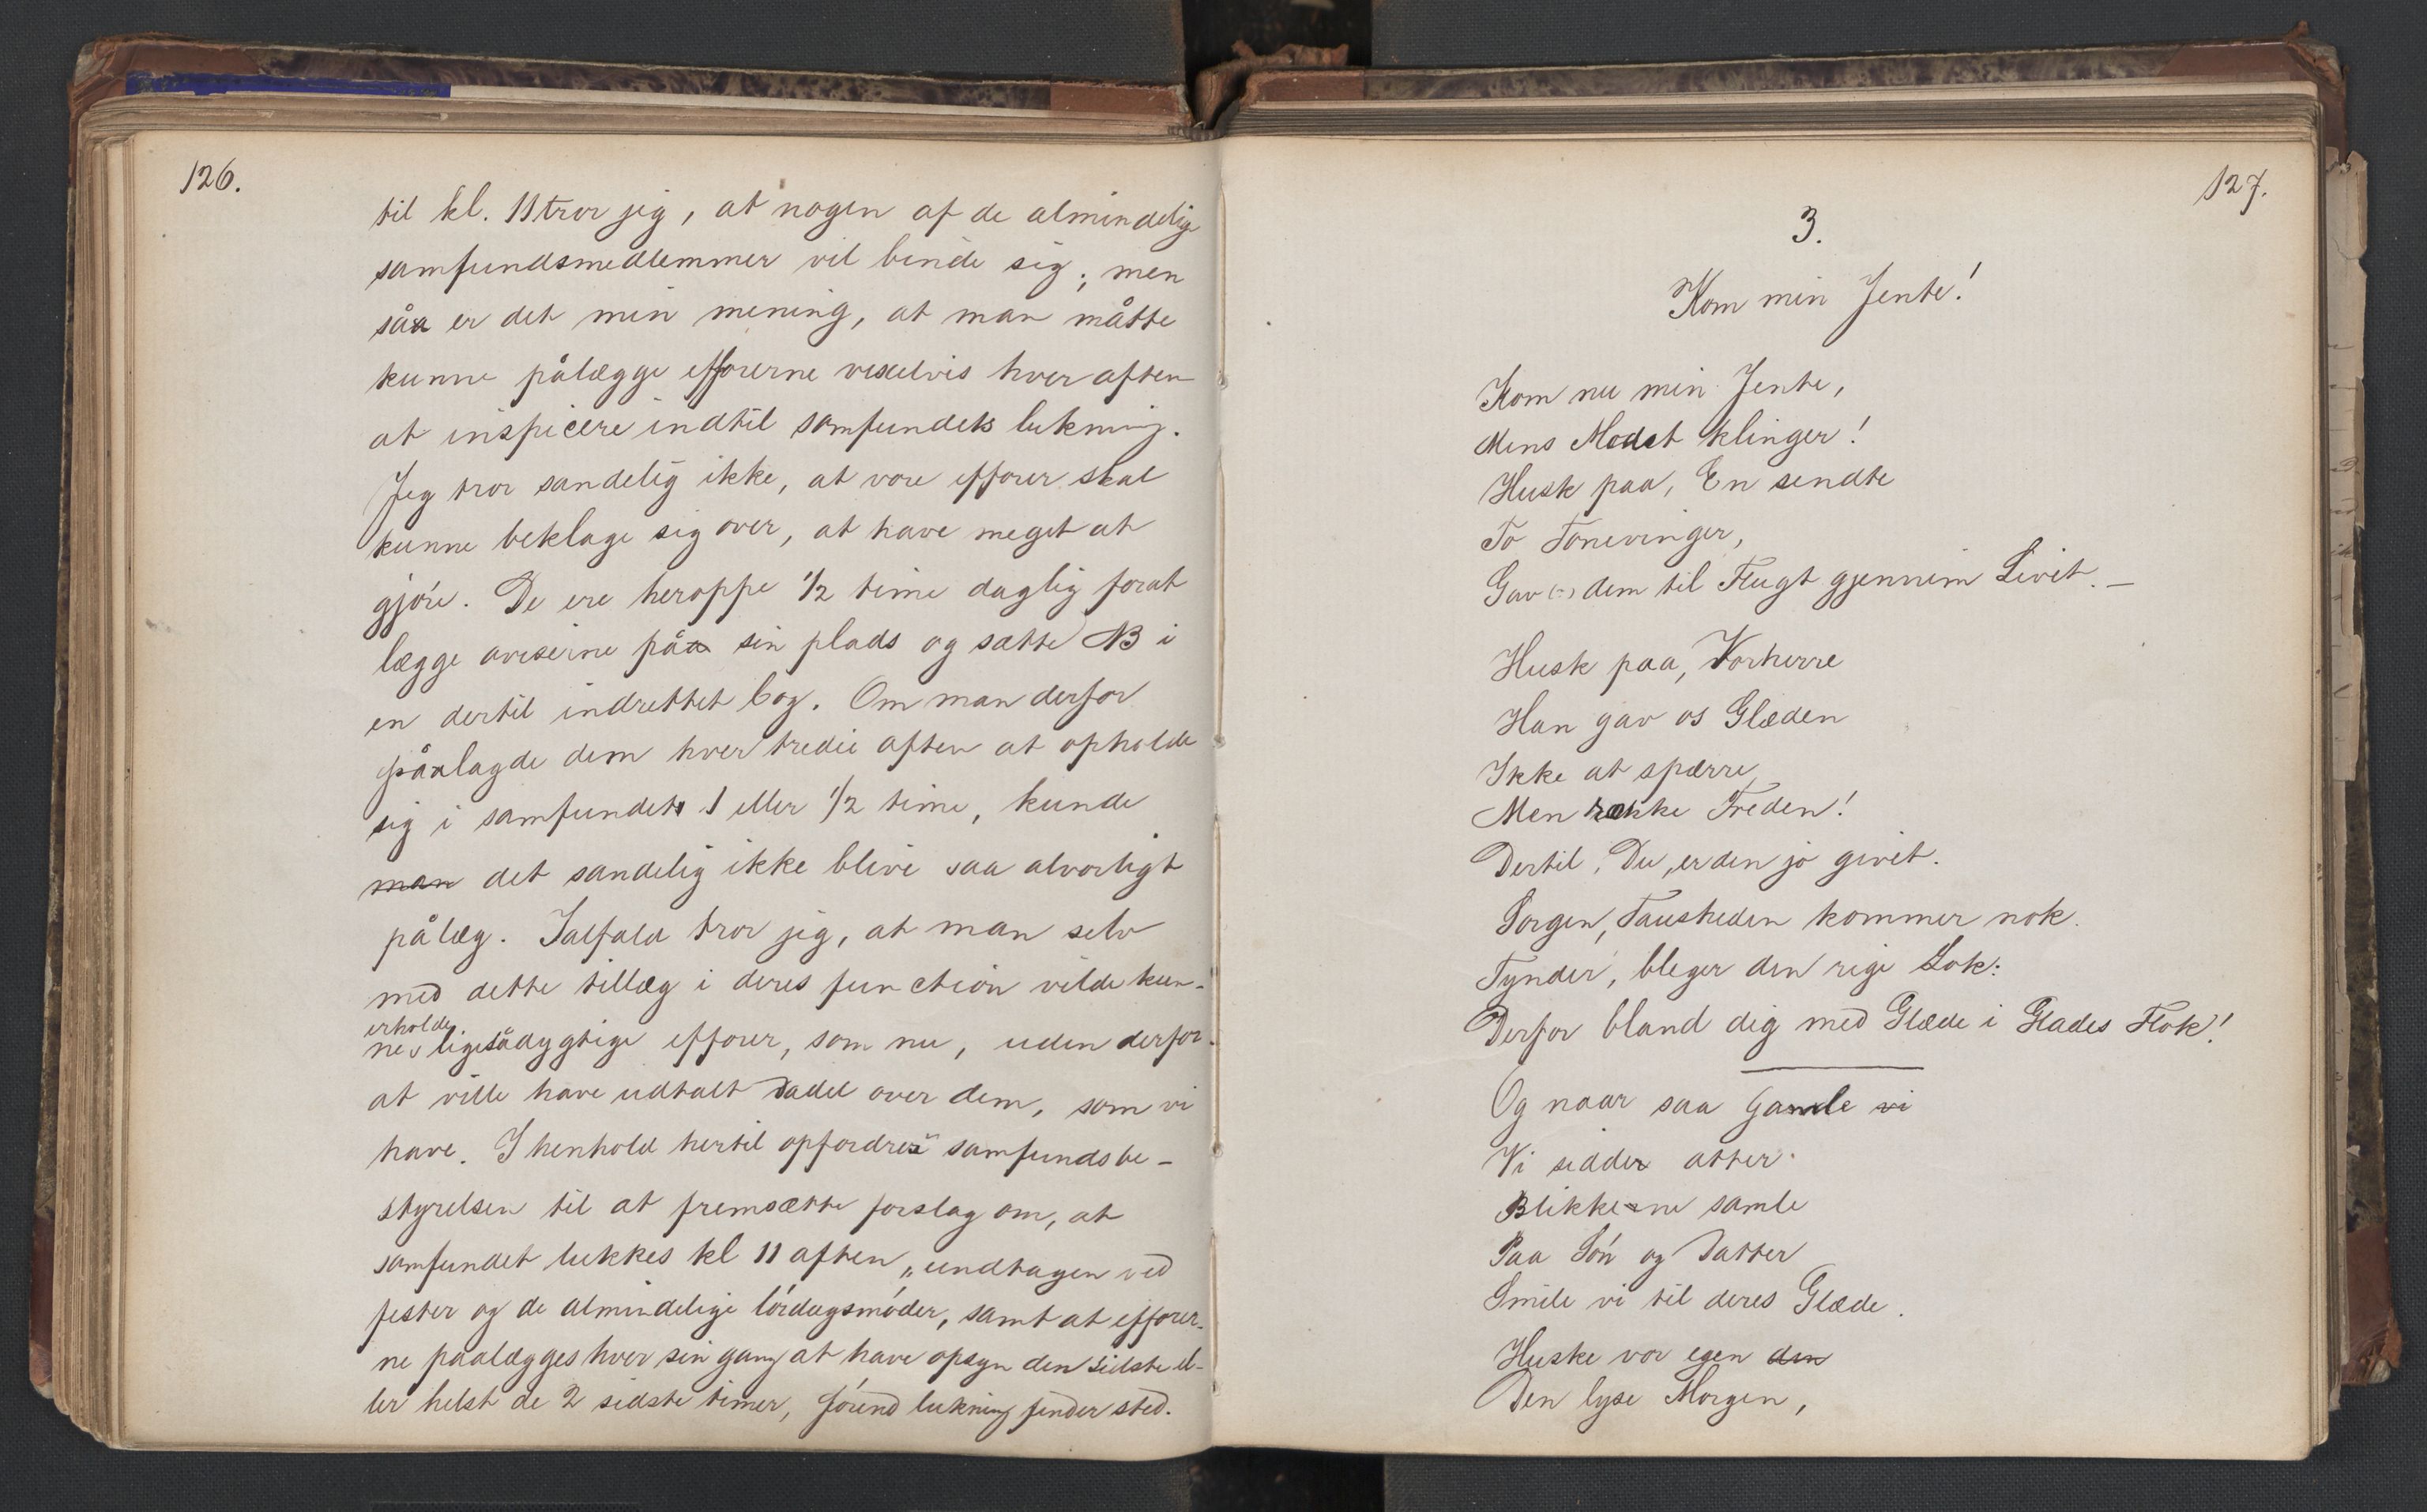 126.
til kl. 11 tror jeg, at nogen af de almindelige
samfundsmedlemmer vil binde sig; men
såa er det min mening, at man måtte
kunne pålægge efforerne vexelvis hver aften
at inspicere indtil samfundets lukning.
Jeg tror sandelig ikke, at vore efforer skal
kunne beklage sig over, at have meget at
gjöre. De ere heroppe 1/2 time daglig forat
lægge aviserne påa sin plads og sætte NB i
en dertil indrettet bog. Om man derfor
påalagde dem hver tredie aften at opholde
sig i samfundet 1 eller 1/2 time, kunde
man det sandelig ikke blive saa alvorligt
pålæg. Ialfald tror jeg, at man selv
med dette tillæg i deres function vilde kun-
erholde
ne ligesådygtige efforer, som nu, uden derfor
at ville have udtalt dadel over dem, som vi
have. I henhold hertil opfordres samfundsbe-
styrelsen til at fremsætte forslag om, at
samfundet lukkes kl 11 aften „undtagen ved
fester og de almindelige lördagsmöder, samt at efforer-
ne paalægges hver sin gang at have opsyn den sidste el-
ler helst de 2 sidste timer, förend lukning finder sted.
127.
3.
Kom min Jente!
Kom nu min Jente,
Mens Modet klinger!
Husk paa, En sendte
To Tonevinger,
Gav (-) dem til Flugt gjennem Livet. –
Husk paa, Vorherre
Han gav os Glæden
Ikke at spærre,
Men række Freden!
Dertil, Du, er den jo givet.
Sorgen, Tausheden kommer nok.
Tynder, bleger den rige Lok:
Derfor bland dig med Glæde i Glades Flok!
Og naar saa Gamle vi
Vi sidder atter
Blikkene samle
Paa Sön og Datter
Smile vi til deres Glæde.
Huske vor egen den
Den lyse Morgen,